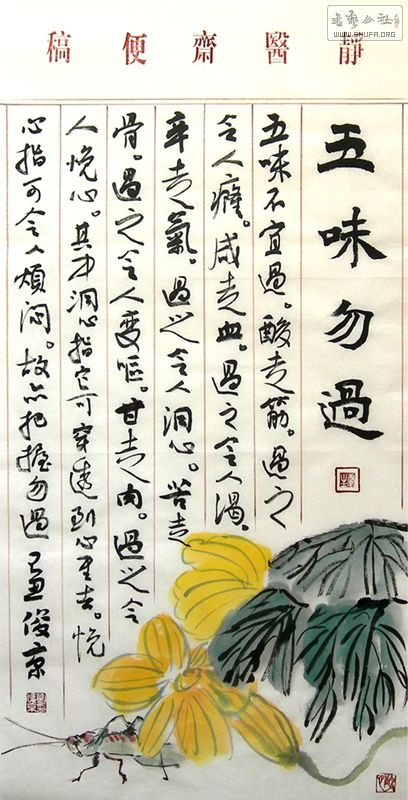 書藝公社
WWW.SHUFA.ORG
靜醫齋便稿
五味勿過
五味不宜過。酸走筋。過之
令人癃。咸走血。過之令人渴。
辛走氣。過之令人洞心。苦走
骨。過之令人變嘔。甘走肉。過之令
人悗心。其中洞心指它可穿透到心里去。悗
心指可令人煩悶。故把握勿過 孟俊京